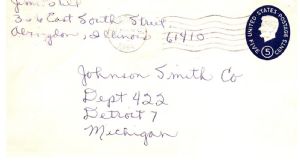 306 East South Street
Abingdon, Illinois 61410
UNITED STATES POSTAGE
5
Johnson Smith Co
Dept 422
Detroit 7
Michigan